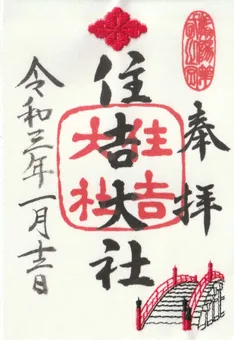 奉拝
住吉大社
住吉
大社
令和三年一月十二日